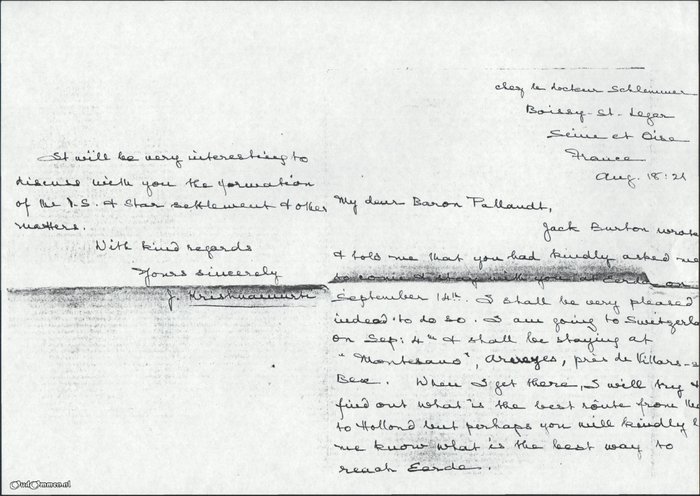 chez le docteur Schlemmer
Boissy-St. Leger
Seine et Oise
France
Aug. 18:21
My dear Baron Pallandt,
Jack Burton wrote
& told me that you had kindly asked me
to come & stay with you at Eerde on
September 14th. I shall be very pleased
indeed to do so. I am going to Switzerla
on Sep: 4th & shall be staying at
"Montesano", Arveyes, près de Villars-s
Bex. When I get there, I will try &
find out what is the best route from
to Holland but perhaps you will kindly
me know what is the best way to
reach Eerde.
It will be very interesting to
discuss with you the formation
of the T.S. & Star settlement & other
matters.
With kind regards
Yours sincerely
J. Krishnamurti
OudOmmen.nl